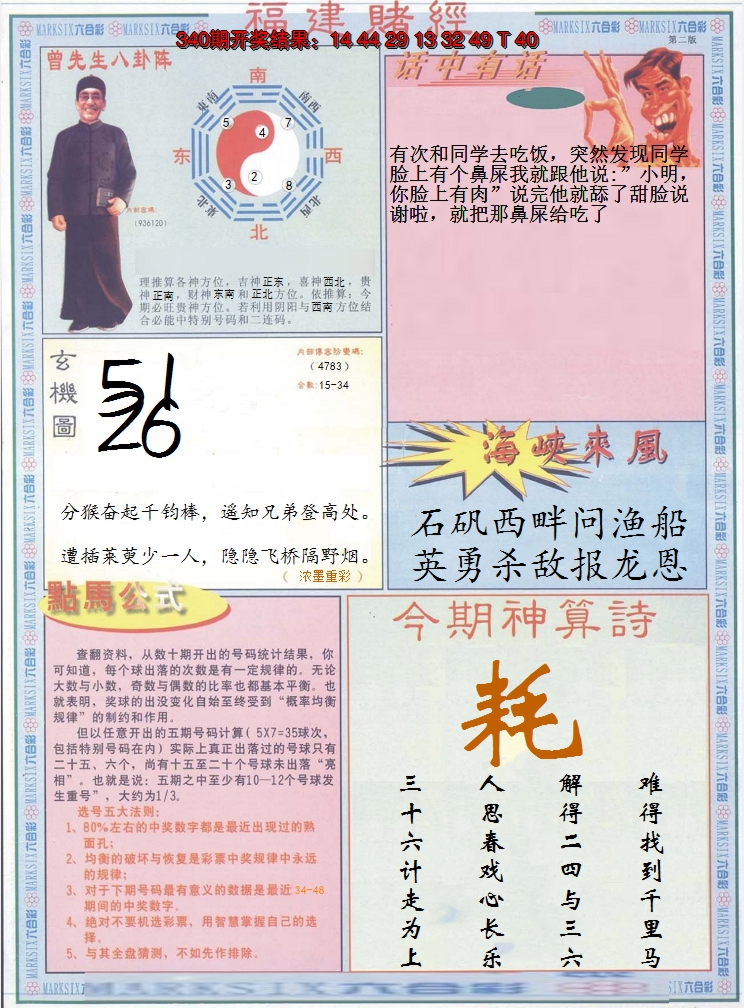 福建賭經
340期开奖结果：14 44 29 13 32 49 T 40
MARKSIX六合彩 MARKSIX六合彩 MARKSIX六合彩 MARKSIX六合彩
第二版
曾先生八卦阵
南
東南
西南
5
7
4
东
西
3
2
8
東北
西北
北
内部密碼:
(936120)
理推算各神方位，吉神正东，喜神西北，贵
神正南，财神东南和正北方位。依推算：今
期必旺贵神方位。若利用阴阳与西南方位结
合必能中特别号码和二连码。
话中有话
有次和同学去吃饭，突然发现同学
脸上有个鼻屎我就跟他说:”小明，
你脸上有肉”说完他就舔了甜脸说
谢啦，就把那鼻屎给吃了
玄機圖
内部傳密秒變碼:
(4783)
合数:15-34
51
26
分猴奋起千钧棒，遥知兄弟登高处。
遭插莱萸少一人，隐隐飞桥隔野烟。
（ 浓墨重彩 ）
海峽來風
石矾西畔问渔船
英勇杀敌报龙恩
點馬公式
查翻资料，从数十期开出的号码统计结果，你
可知道，每个球出落的次数是有一定规律的。无论
大数与小数，奇数与偶数的比率也都基本平衡。也
就表明，奖球的出没变化自始至终受到“概率均衡
规律”的制约和作用。
但以任意开出的五期号码计算( 5X7=35球次，
包括特别号码在内) 实际上真正出落过的号球只有
二十五、六个，尚有十五至二十个号球未出落“亮
相”。也就是说：五期之中至少有10—12个号球发
生重号”，大约为1/3。
选号五大法则：
1、80%左右的中奖数字都是最近出现过的熟
面孔；
2、均衡的破坏与恢复是彩票中奖规律中永远
的规律；
3、对于下期号码最有意义的数据是最近34-48
期间的中奖数字。
4、绝对不要机选彩票，用智慧掌握自己的选
择。
5、与其全盘猜测，不如先作排除。
今期神算詩
耗
难得找到千里马
解得二四与三六
人思春戏心长乐
三十六计走为上